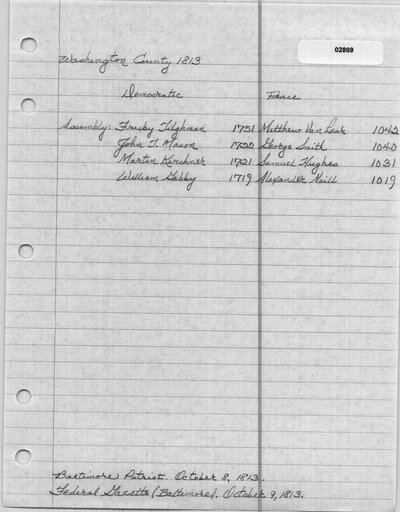 02869
Washington County 1813
Democratic Peace
Assembly: Frisby Tilghman 1751 Matthew Van Lear 1042
John T. Mason George Smith 1040
Martin Kershner 1721 Samuel Hughes 1031
William Gabby 1719 Alexander Neill 1019
Baltimore Patriot. October 8, 1813.
Federal Gazette (Baltimore). October 9, 1813.